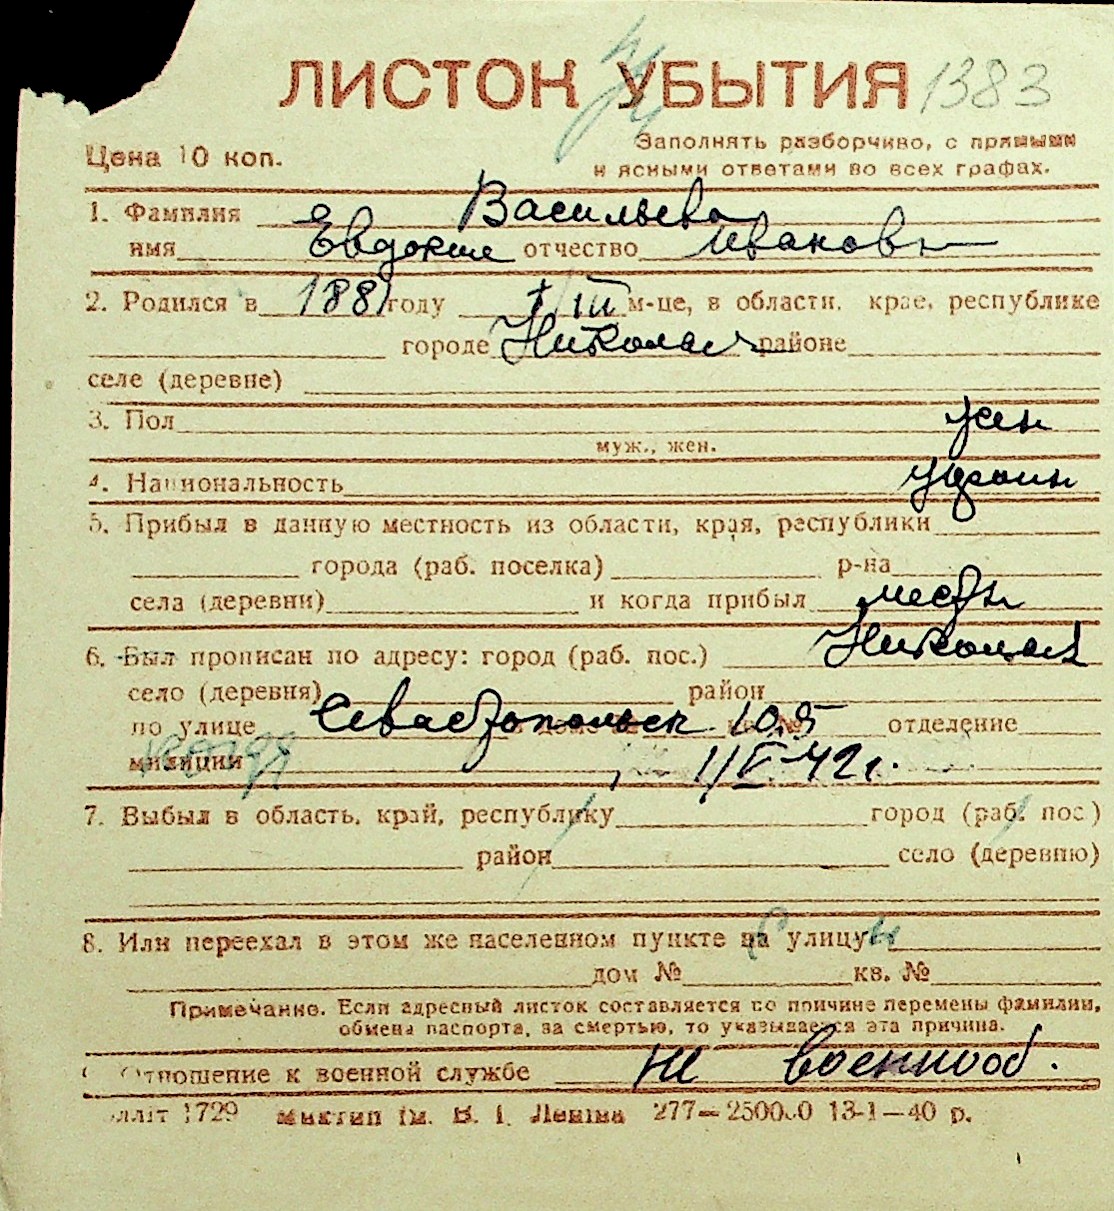 ЛИСТОК УБЫТИЯ 1383
Цена 10 коп.
Заполнять разборчиво, с прямыми
и ясными ответами во всех графах.
1. Фамилия Васильева
имя Евдокия отчество Ивановн
2. Родился в 1881 году 1/III м-це, в области, крае, республике
городе Николаев районе
селе (деревне)
3. Пол жен
муж., жен.
4. Национальность украин
5. Прибыл в данную местность из области, края, республики
города (раб. поселка) р-на
села (деревни) и когда прибыл местн
6. Был прописан по адресу: город (раб. пос.) Николаев
село (деревня) район
по улице Севастопольск 105 отделение
милиции 42г.
7. Выбыл в область, край, республику город (раб. пос.)
район село (деревню)
8. Или переехал в этом же населенном пункте на улицу
дом № кв. №
Примечание. Если адресный листок составляется по причине перемены фамилии,
обмена паспорта, за смертью, то указывается эта причина.
Отношение к военной службе не военнооб.
1729 ім. В. І. Леніна 277—250000 13-1—40 р.